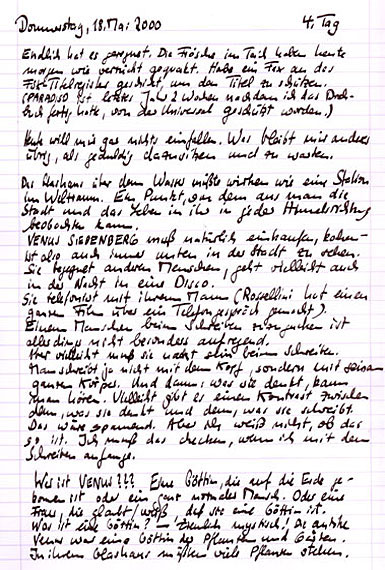 Donnerstag, 18. Mai 2000 4. Tag
Endlich hat es geregnet. Die Frösche im Teich haben heute
morgen wie verrückt gequakt. Habe ein Fax an das
FSK-Titelregister geschickt, um den Titel zu schützen.
(PARADISO ist letztes Jahr 2 Wochen nachdem ich das Dreh-
buch fertig hatte, von das Universal geschützt worden.)
Heute will mir gar nichts einfallen. Was bleibt mir anderes
übrig, als geduldig dazusitzen und zu warten.
Das Glashaus über dem Wasser müßte wirken wie eine Station
im Weltraum. Ein Punkt, von dem aus man die
Stadt und das Leben in ihr in jeder Himmelsrichtung
beobachten kann.
VENUS SIEBENBERG muß natürlich einkaufen, kochen
ist also auch immer unten in der Stadt zu sehen.
Sie begegnet anderen Menschen, geht vielleicht auch
in der Nacht in eine Disco.
Sie telefoniert mit ihrem Mann (Rossellini hat einen
ganzen Film über ein Telefongespräch gemacht).
Einem Menschen beim Schreiben zuzugucken ist
allerdings nicht besonders aufregend.
Aber vielleicht muß sie nackt sein beim schreiben.
Man schreibt ja nicht mit dem Kopf, sondern mit seinem
ganzen Körper. Und dann: was sie denkt, kann
man hören. Vielleicht gibt es einen Kontrast zwischen
dem, was sie denkt und dem, was sie schreibt.
Das wäre spannend. Aber ich weiß nicht, ob das
so ist. Ich muß das checken, wenn ich mit dem
Schreiben anfange.
Wer ist VENUS??? Eine Göttin, die auf die Erde ge-
kommen ist oder ein ganz normaler Mensch. Oder eine
Frau, die glaubt/weiß, daß sie eine Göttin ist.
Was ist eine Göttin? – Ziemlich mystisch! Die antike
Venus war eine Göttin der Pflanzen und Gärten.
In ihrem Glashaus müßten viele Pflanzen stehen.